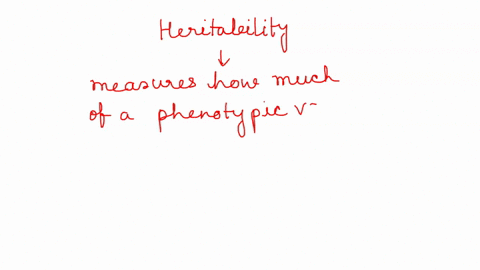 Heritability
↓
measures how much
of a phenotypic v